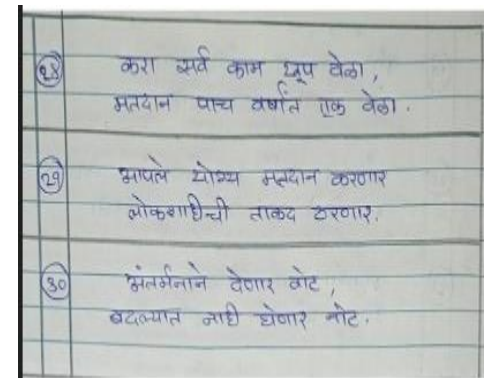 २८ करा सर्व काम खूप वेळा,
मतदान पाच वर्षांत एक वेळा.
२९ आपले योग्य मतदान करणार
लोकशाहीची ताकद ठरणार.
३० अंतर्मनाने देणार वोट,
बदल्यात नाही घेणार नोट.